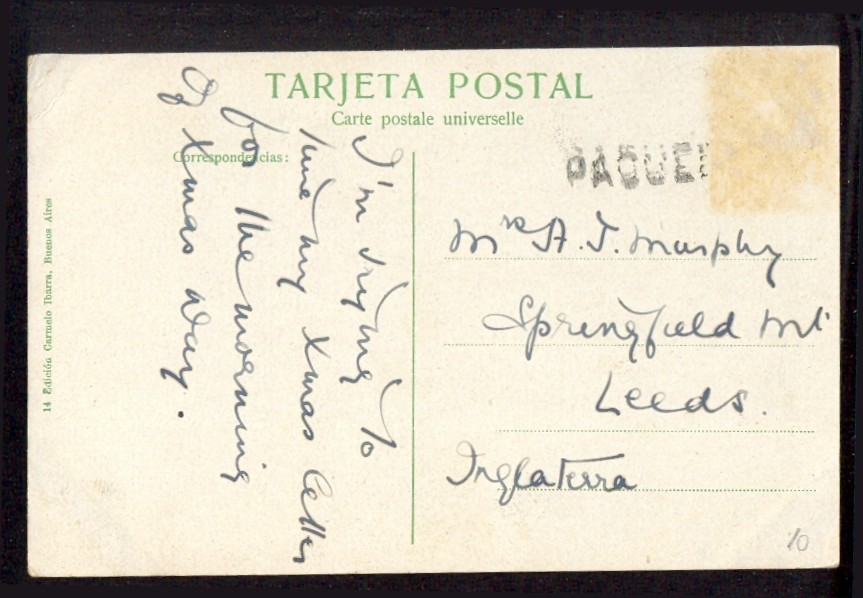 TARJETA POSTAL
Carte postale universelle
Correspondencias:
I'm trying to
time my Xmas letter
for the morning
of Xmas day.
14 Edición Carmelo Ibarra, Buenos Aires
Mrs A. T. Murphy
Springfield Mt
Leeds.
Inglaterra
10